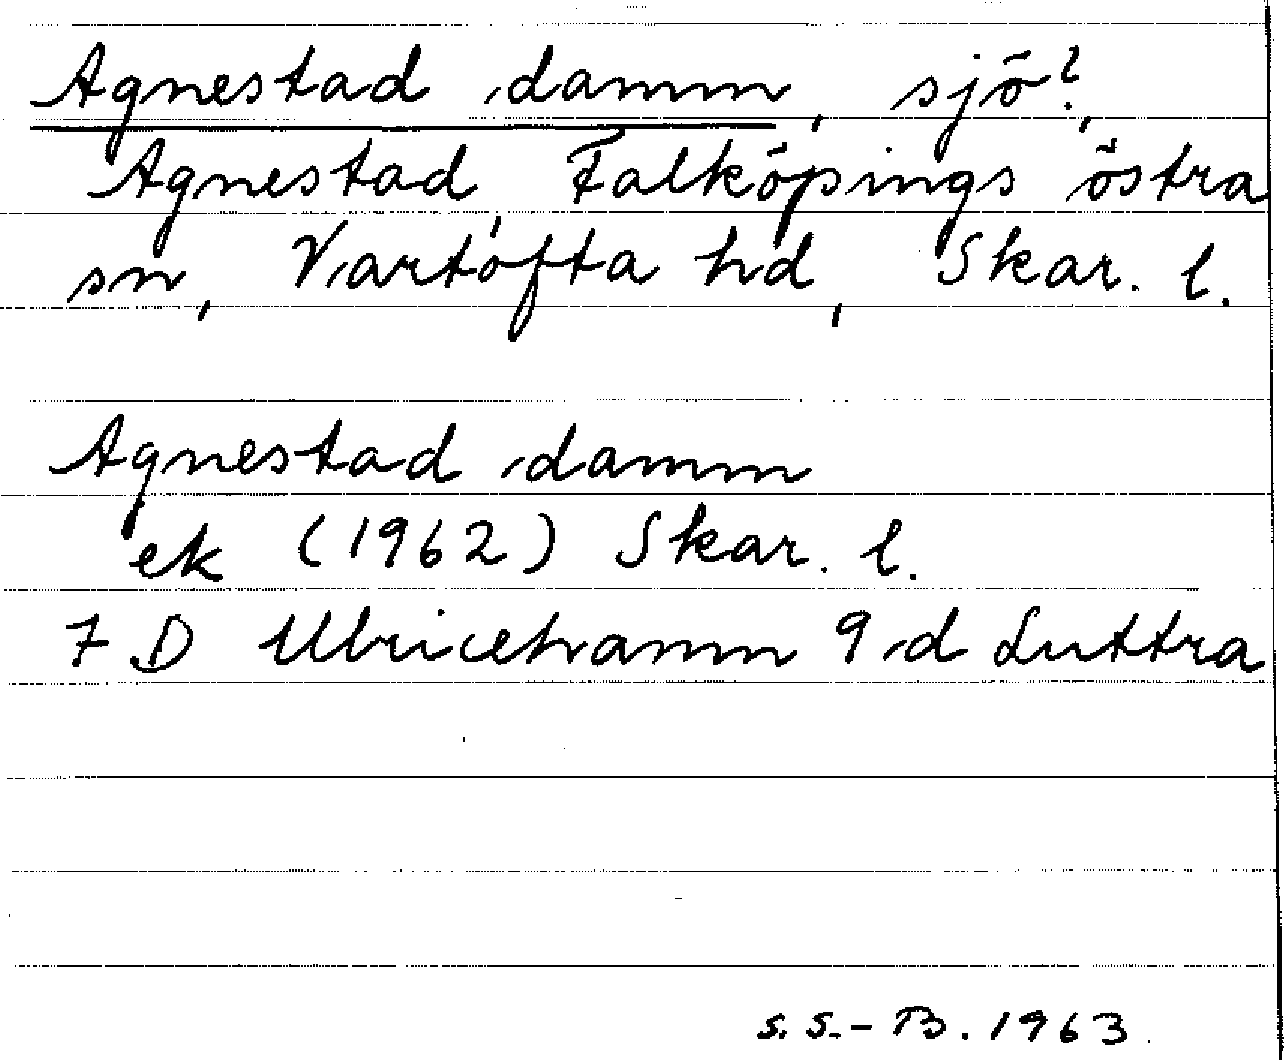 Agnestad damm, sjö?,
Agnestad, Falköpings östra
sn, Vartofta hd, Skar. l.
Agnestad damm
ek (1962) Skar. l.
7 D Ulricehamn 9 d Luttra
S. S.-B. 1963